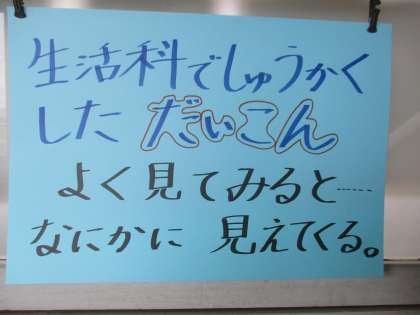 生活科でしゅうかく
した だいこん
よく見てみると……
なにかに 見えてくる。